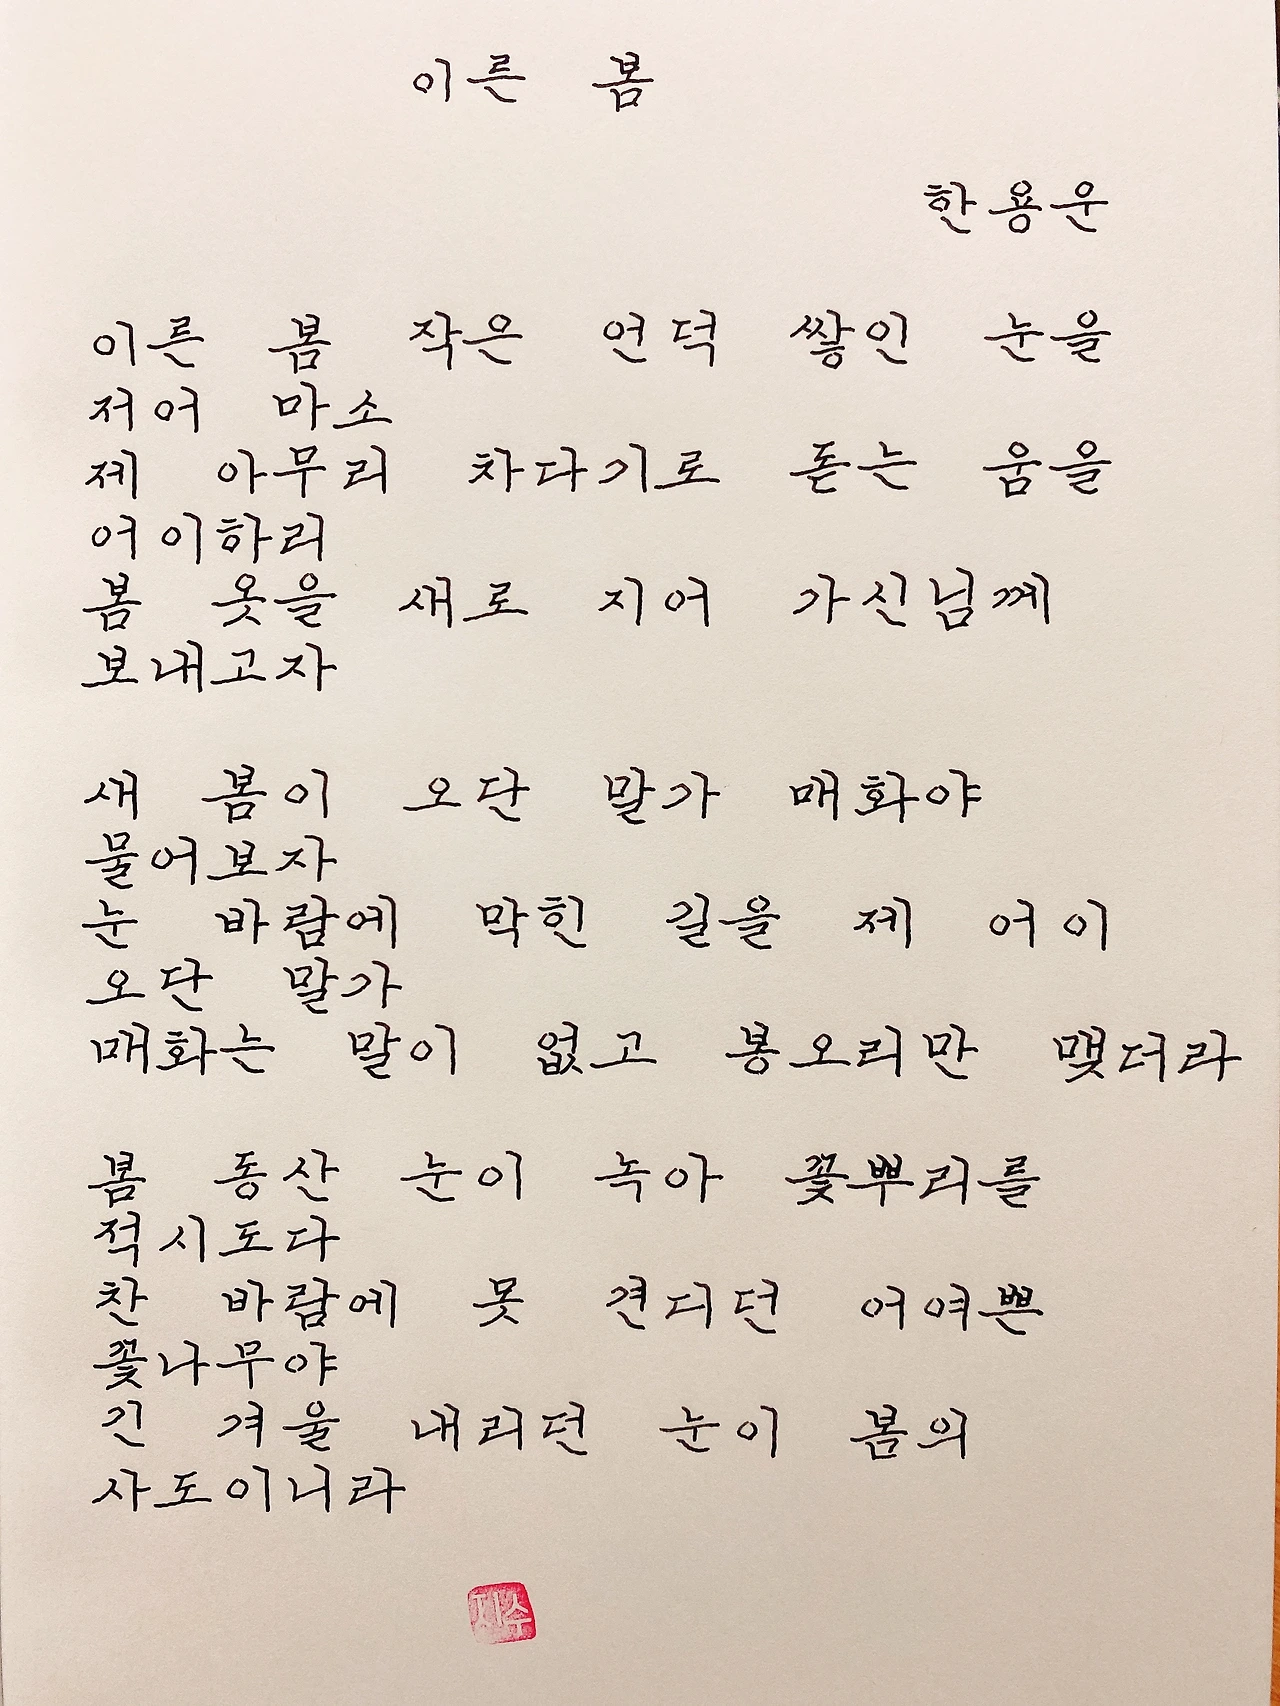 이른 봄
한용운
이른 봄 작은 언덕 쌓인 눈을
저어 마소
제 아무리 차다기로 돋는 움을
어이하리
봄 옷을 새로 지어 가신님께
보내고자
새 봄이 오단 말가 매화야
물어보자
눈 바람에 막힌 길을 제 어이
오단 말가
매화는 말이 없고 봉오리만 맺더라
봄 동산 눈이 녹아 꽃뿌리를
적시도다
찬 바람에 못 견디던 어여쁜
꽃나무야
긴 겨울 내리던 눈이 봄의
사도이니라